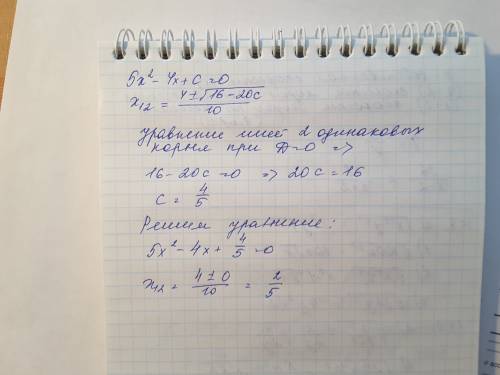 5x² - 4x + C = 0
x₁₂ = (4 ± √16 - 20c) / 10
уравнение имеет 2 одинаковых
корня при D = 0 =>
16 - 20c = 0 => 20c = 16
c = 4/5
Решим уравнение:
5x² - 4x + 4/5 = 0
x₁₂ = (4 ± 0) / 10 = 2/5